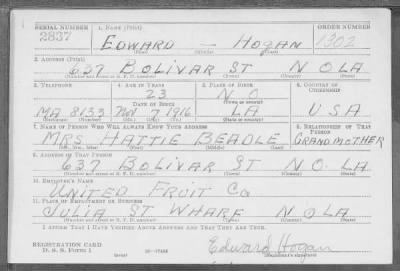 SERIAL NUMBER 1. NAME (Print) ORDER NUMBER
2837 EDWARD - HOGAN 1302
(First) (Middle) (Last)
2. ADDRESS (Print)
637 BOLIVAR ST N O LA
(Number and street or R. F. D. number) (Town) (County) (State)
3. TELEPHONE 4. AGE IN YEARS 5. PLACE OF BIRTH 6. COUNTRY OF CITIZENSHIP
23 N. O
DATE OF BIRTH (Town or county)
MA 8133 NOV 7 1916 LA USA
(Exchange) (Number) (Mo.) (Day) (Yr.) (State or country)
7. NAME OF PERSON WHO WILL ALWAYS KNOW YOUR ADDRESS 8. RELATIONSHIP OF THAT PERSON
MRS HATTIE BEADLE GRANDMOTHER
(Mr., Mrs., Miss) (First) (Middle) (Last)
9. ADDRESS OF THAT PERSON
637 BOLIVAR ST N O. LA
(Number and street or R. F. D. number) (Town) (County) (State)
10. EMPLOYER'S NAME
UNITED FRUIT CO
11. PLACE OF EMPLOYMENT OR BUSINESS
JULIA ST WHARF N O LA
(Number and street or R. F. D. number) (Town) (County) (State)
I AFFIRM THAT I HAVE VERIFIED ABOVE ANSWERS AND THAT THEY ARE TRUE.
REGISTRATION CARD
D. S. S. FORM 1 (over) Edward Hogan
(Registrant's signature)